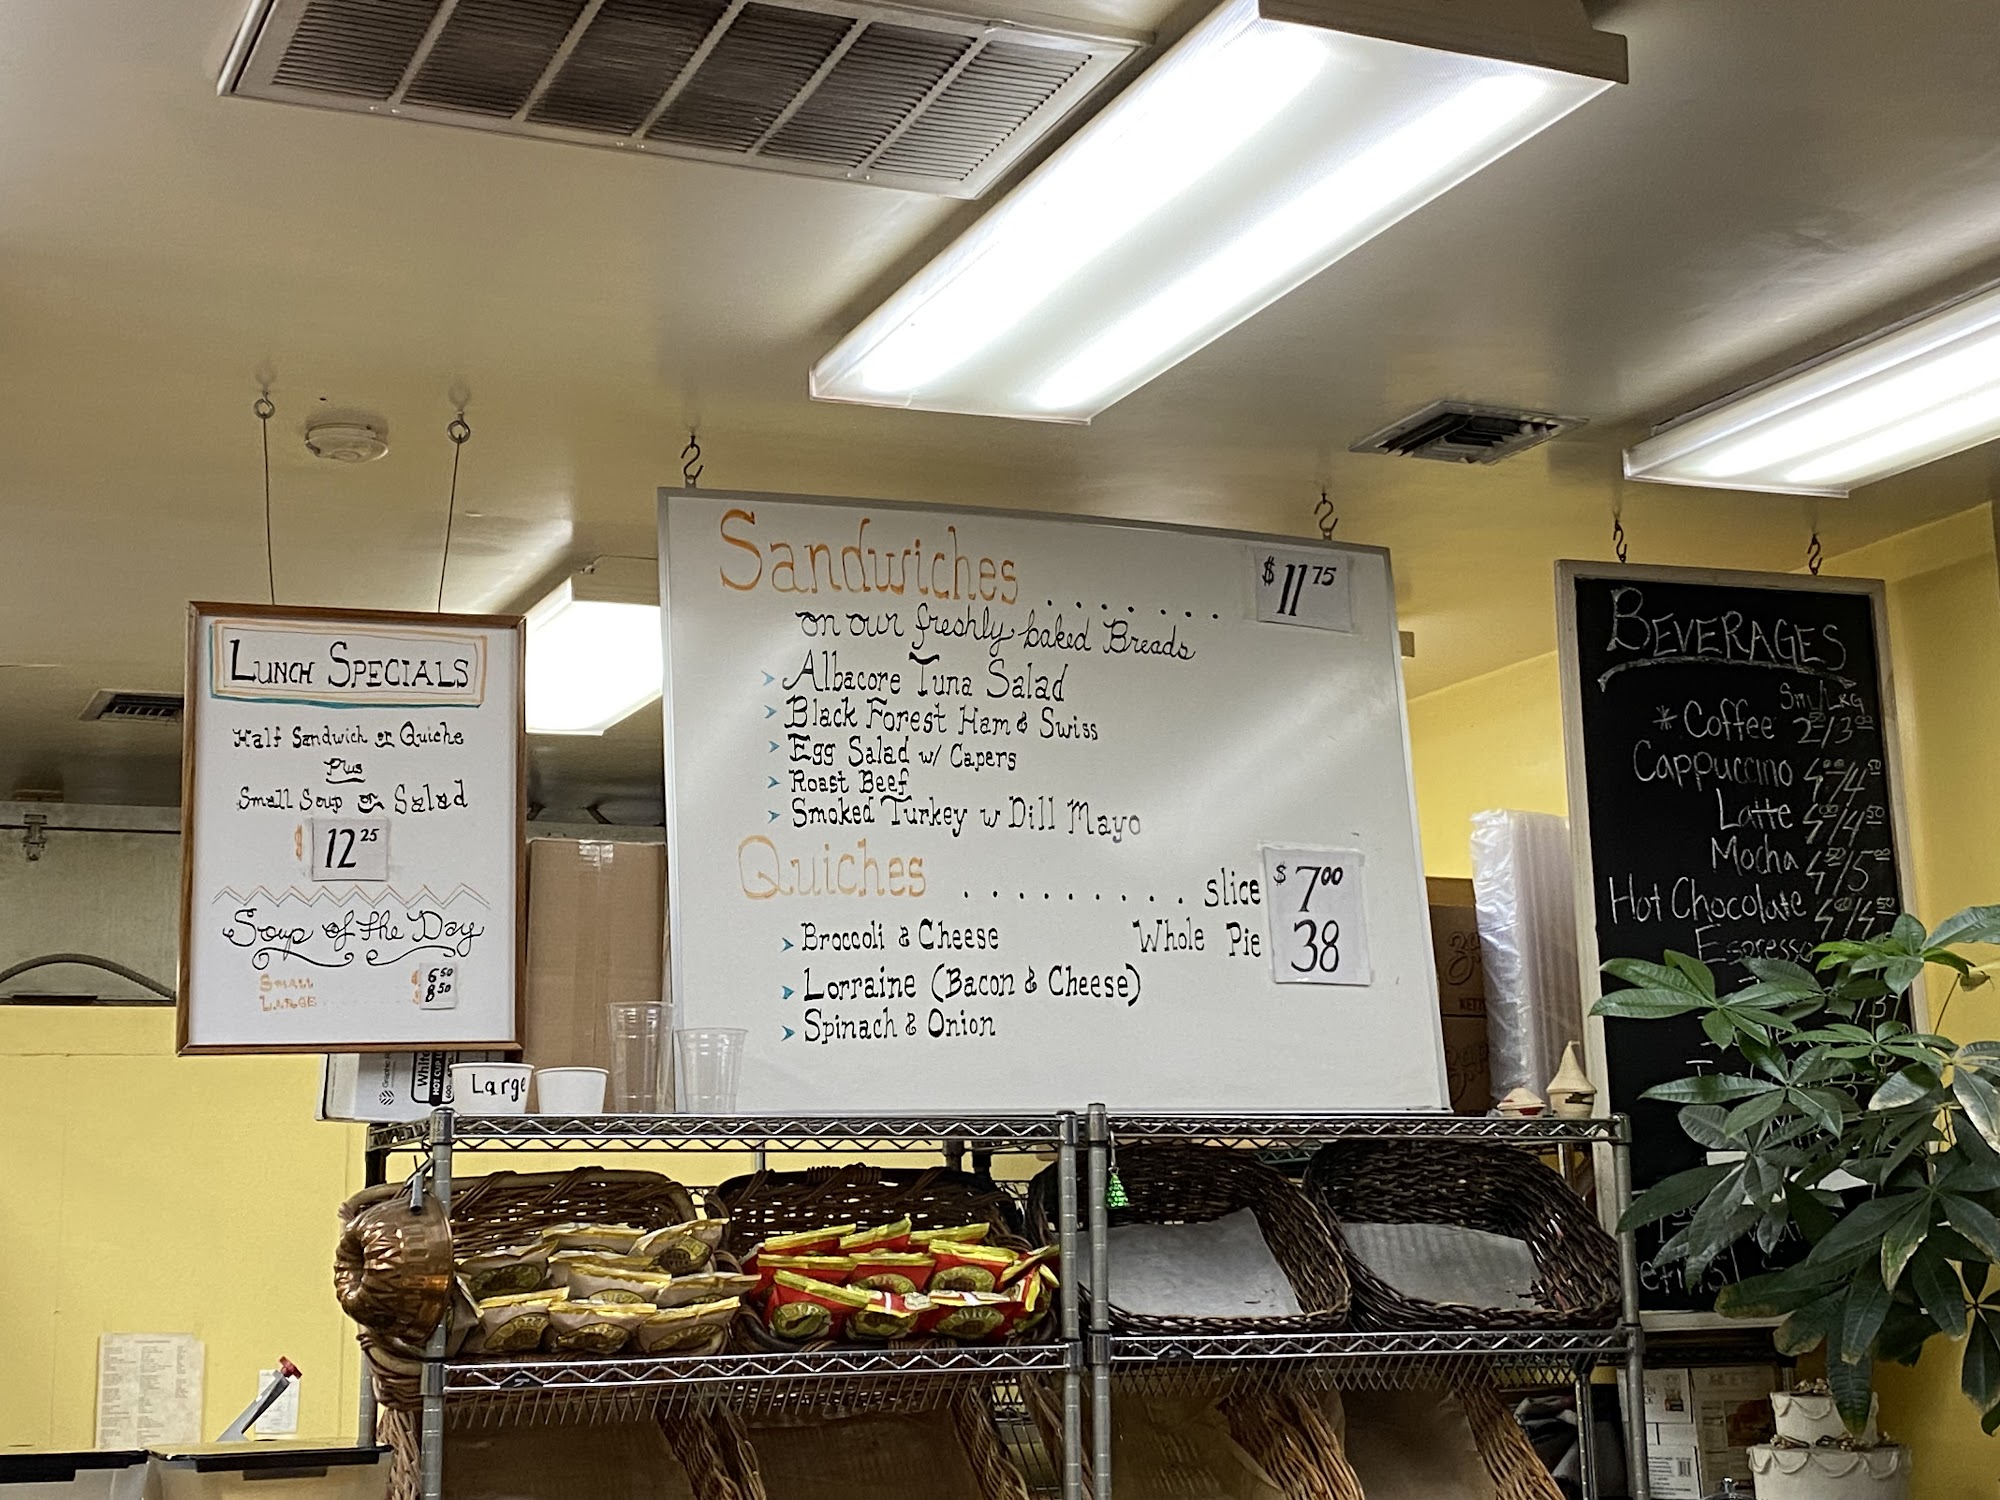 LUNCH SPECIALS
Half Sandwich or Quiche
Plus
Small Soup or Salad
$ 12 25
Soup of the Day
SMALL $ 6 50
LARGE $ 8 50
Sandwiches . . . . . . . . $ 11 75
on our freshly baked Breads
Albacore Tuna Salad
Black Forest Ham & Swiss
Egg Salad w/ Capers
Roast Beef
Smoked Turkey w Dill Mayo
Quiches . . . . . . . . . slice $ 7 00
Broccoli & Cheese Whole Pie 38
Lorraine (Bacon & Cheese)
Spinach & Onion
BEVERAGES
Sm/LRG
* Coffee 2 50/3 00
Cappuccino 4 00/4 50
Latte 4 00/4 50
Mocha 4 50/5 00
Hot Chocolate 4 00/4 50
Espresso
Large
White
HOT CUP